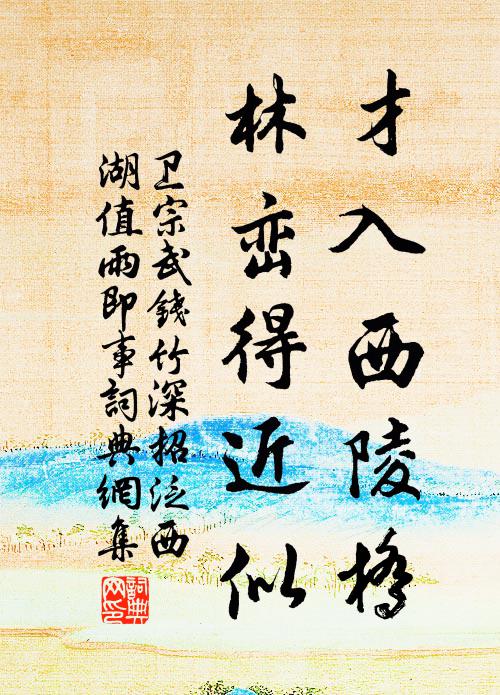 才入西陵桥
林峦得近似
卫宗武钱竹深招泛西
湖值雨即事词典网集